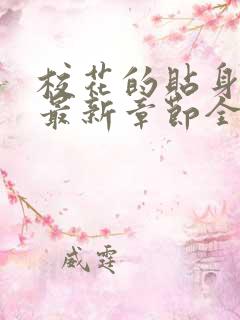 校花的贴身
最新章节全
威霆